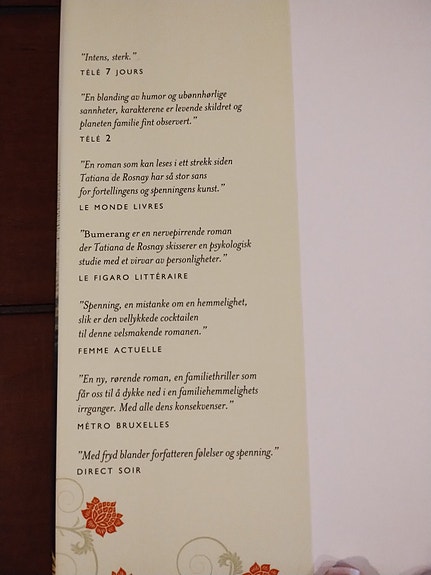 "Intens, sterk."
TÉLÉ 7 JOURS
"En blanding av humor og ubønnhørlige
sannheter, karakterene er levende skildret og
planeten familie fint observert."
TÉLÉ 2
"En roman som kan leses i ett strekk siden
Tatiana de Rosnay har så stor sans
for fortellingens og spenningens kunst."
LE MONDE LIVRES
"Bumerang er en nervepirrende roman
der Tatiana de Rosnay skisserer en psykologisk
studie med et virvar av personligheter."
LE FIGARO LITTÉRAIRE
"Spenning, en mistanke om en hemmelighet,
slik er den vellykkede cocktailen
til denne velsmakende romanen."
FEMME ACTUELLE
"En ny, rørende roman, en familiethriller som
får oss til å dykke ned i en familiehemmelighets
irrganger. Med alle dens konsekvenser."
MÉTRO BRUXELLES
"Med fryd blander forfatteren følelser og spenning."
DIRECT SOIR